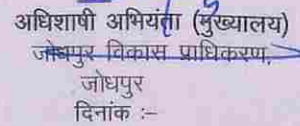 अधिशाषी अभियंता (मुख्यालय)
जोधपुर विकास प्राधिकरण,
जोधपुर
दिनांक :–